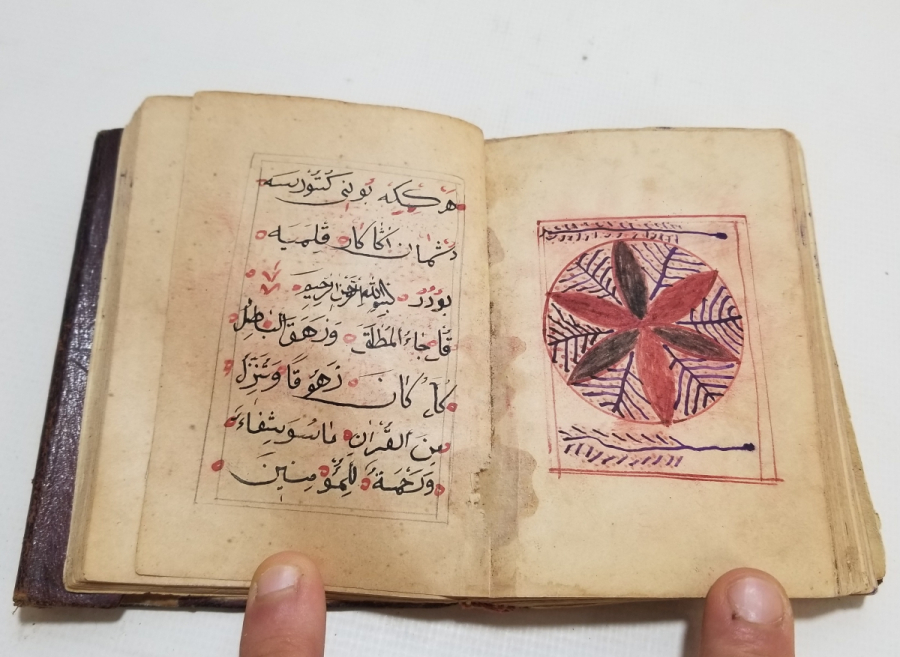 هر كمكه بونى كتورسه
دشمان اكا كار قلميه
بودر بسم الله الرحمن الرحيم
قل جاء الحق وزهق الباطل
كان زهوقا وننزل
من القرآن ما هو شفاء
ورحمة للمؤمنين